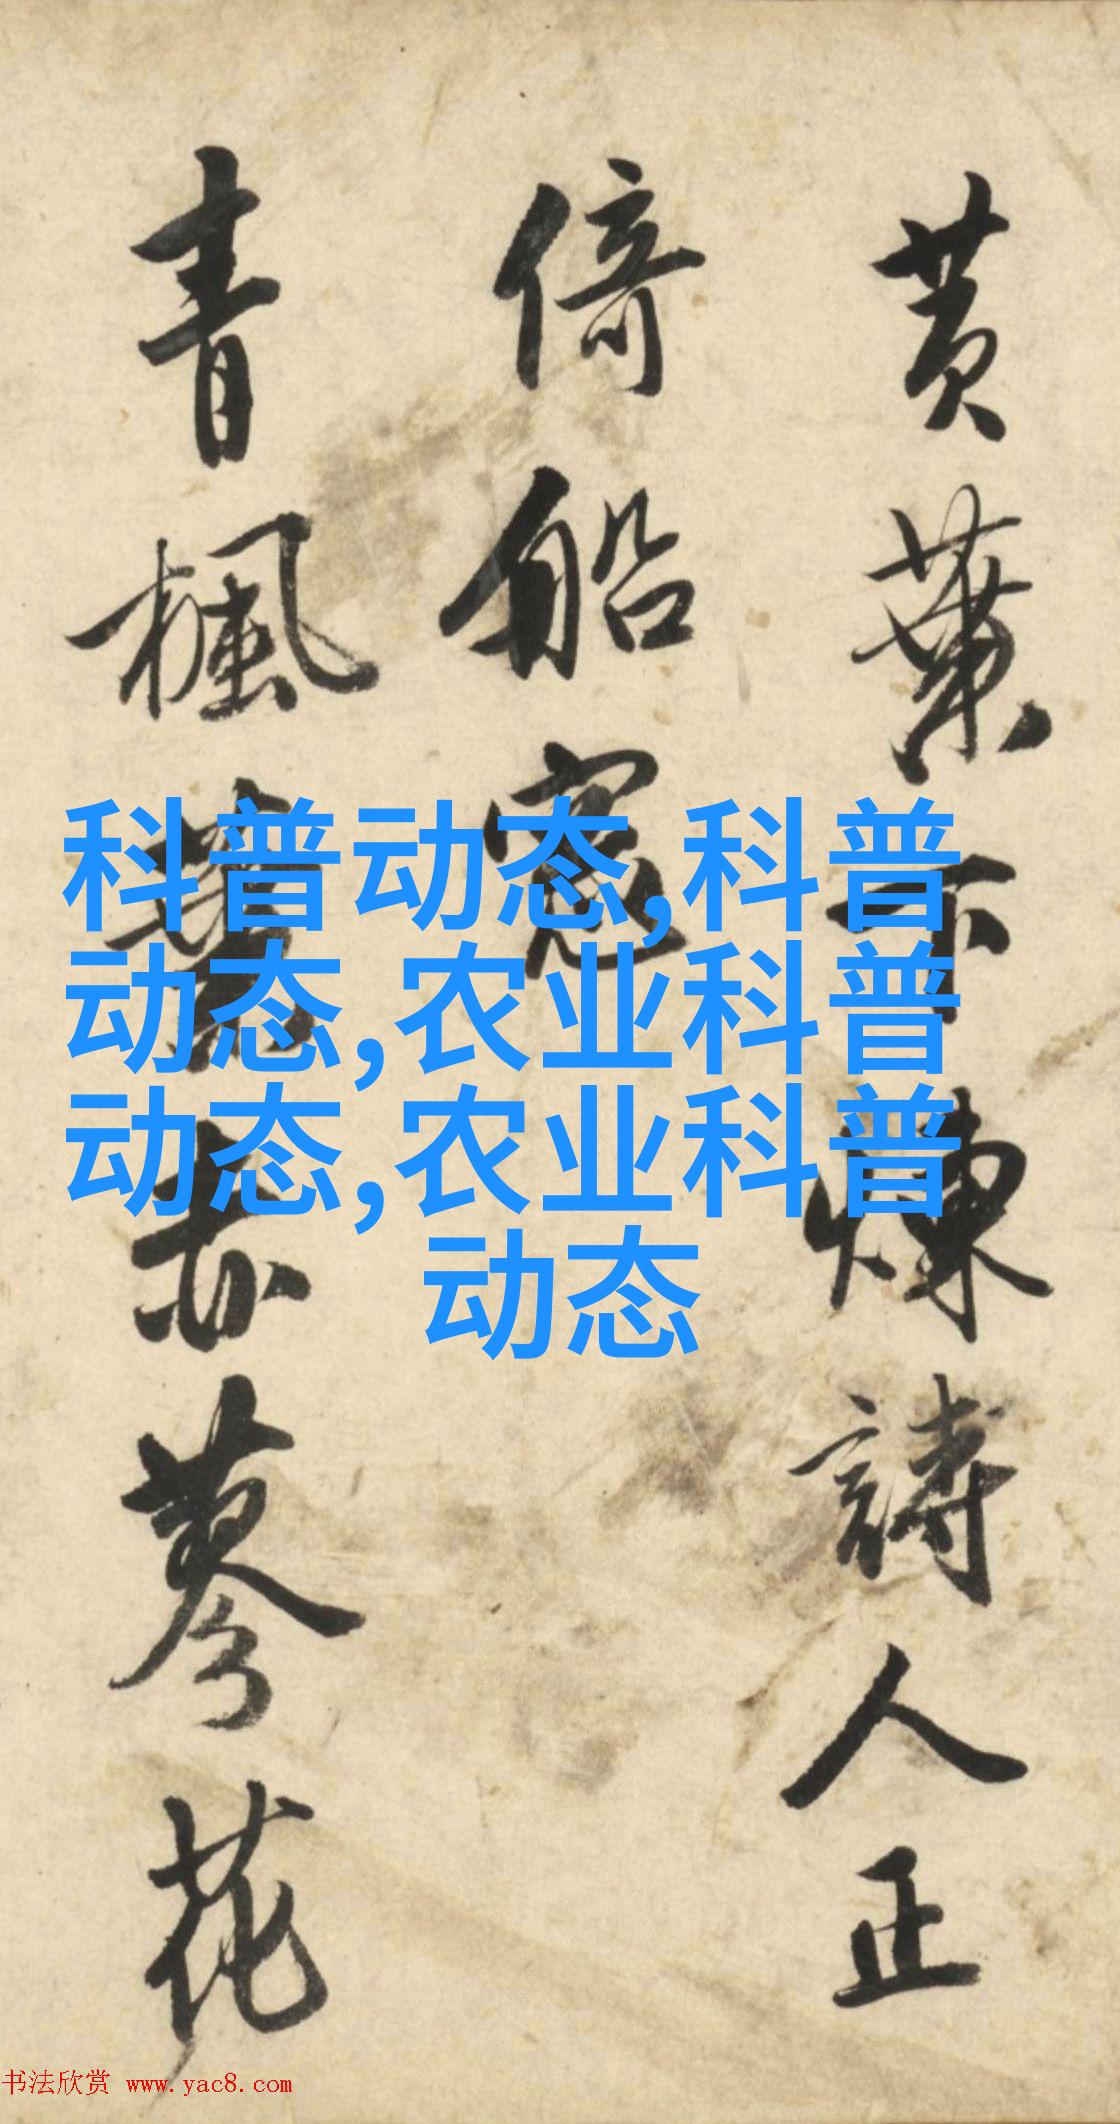 黄葉下煉詩人正
倚船窓
青楓蓼花
科普动态,科普
动态,农业科普
动态,农业科普
动态
书法欣赏 www.yac8.com